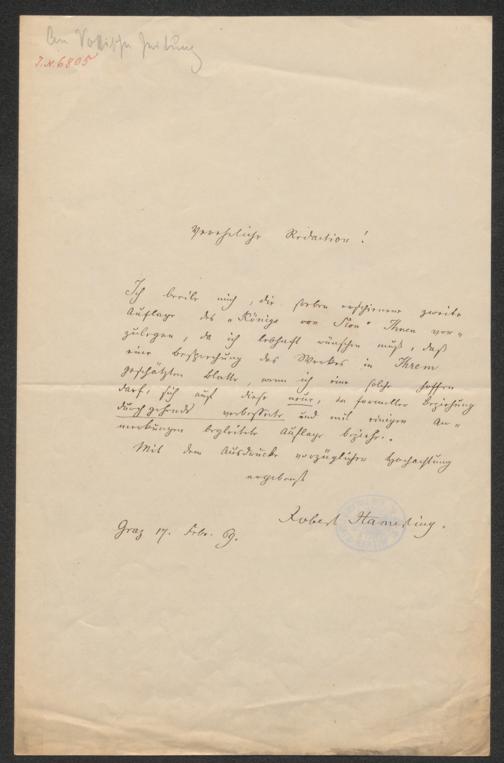 Vossische Zeitung
J.N. 6805
Verehrliche Redaction!
Ich beeile mich, die soeben erschienene zweite
Auflage des „Königs von Sion“ Ihnen vor-
zulegen, da ich lebhaft wünschen muß, daß
eine Besprechung des Werkes in Ihrem
geschätzten Blatte, wenn ich eine solche hoffen
darf, sich auf diese neue, in formeller Beziehung
durchgehends verbesserte und mit einigen An-
merkungen begleitete Auflage beziehe.
Mit dem Ausdrucke vorzüglicher Hochachtung
ergebenst
Robert Hamerling.
Graz 17. Febr. 69.